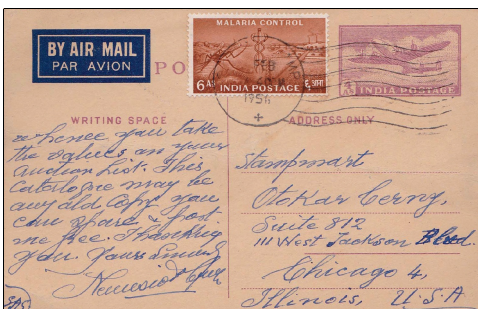 BY AIR MAIL
PAR AVION
PO
MALARIA CONTROL
6 As
INDIA POSTAGE
INDIA POSTAGE
FEB
1954
WRITING SPACE
ADDRESS ONLY
whence you take
the values, on your
auction List. This
catelogue may be
any old Copy you
can spare & post
me free. Thanking
you. Yours
Stampmart
Otokar Cerny,
Suite 812
111 West Jackson Blvd.
Chicago 4,
Illinois, U.S.A